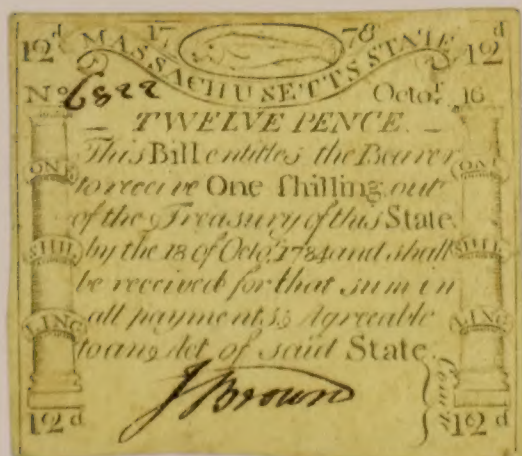 12d 17 78 12d
MASSACHUSETTS STATE
No 6822 Octor. 16
- TWELVE PENCE. -
This Bill entitles the Bearer
to receive One ſhilling out
of the Treasury of this State.
by the 18 of Octo. 1784 and shall
be received for that sum in
all payments, Agreeable
to an Act of said State.
ONE ONE
SHIL SHIL
LING LING
J Brown
Comtt
12d 12d